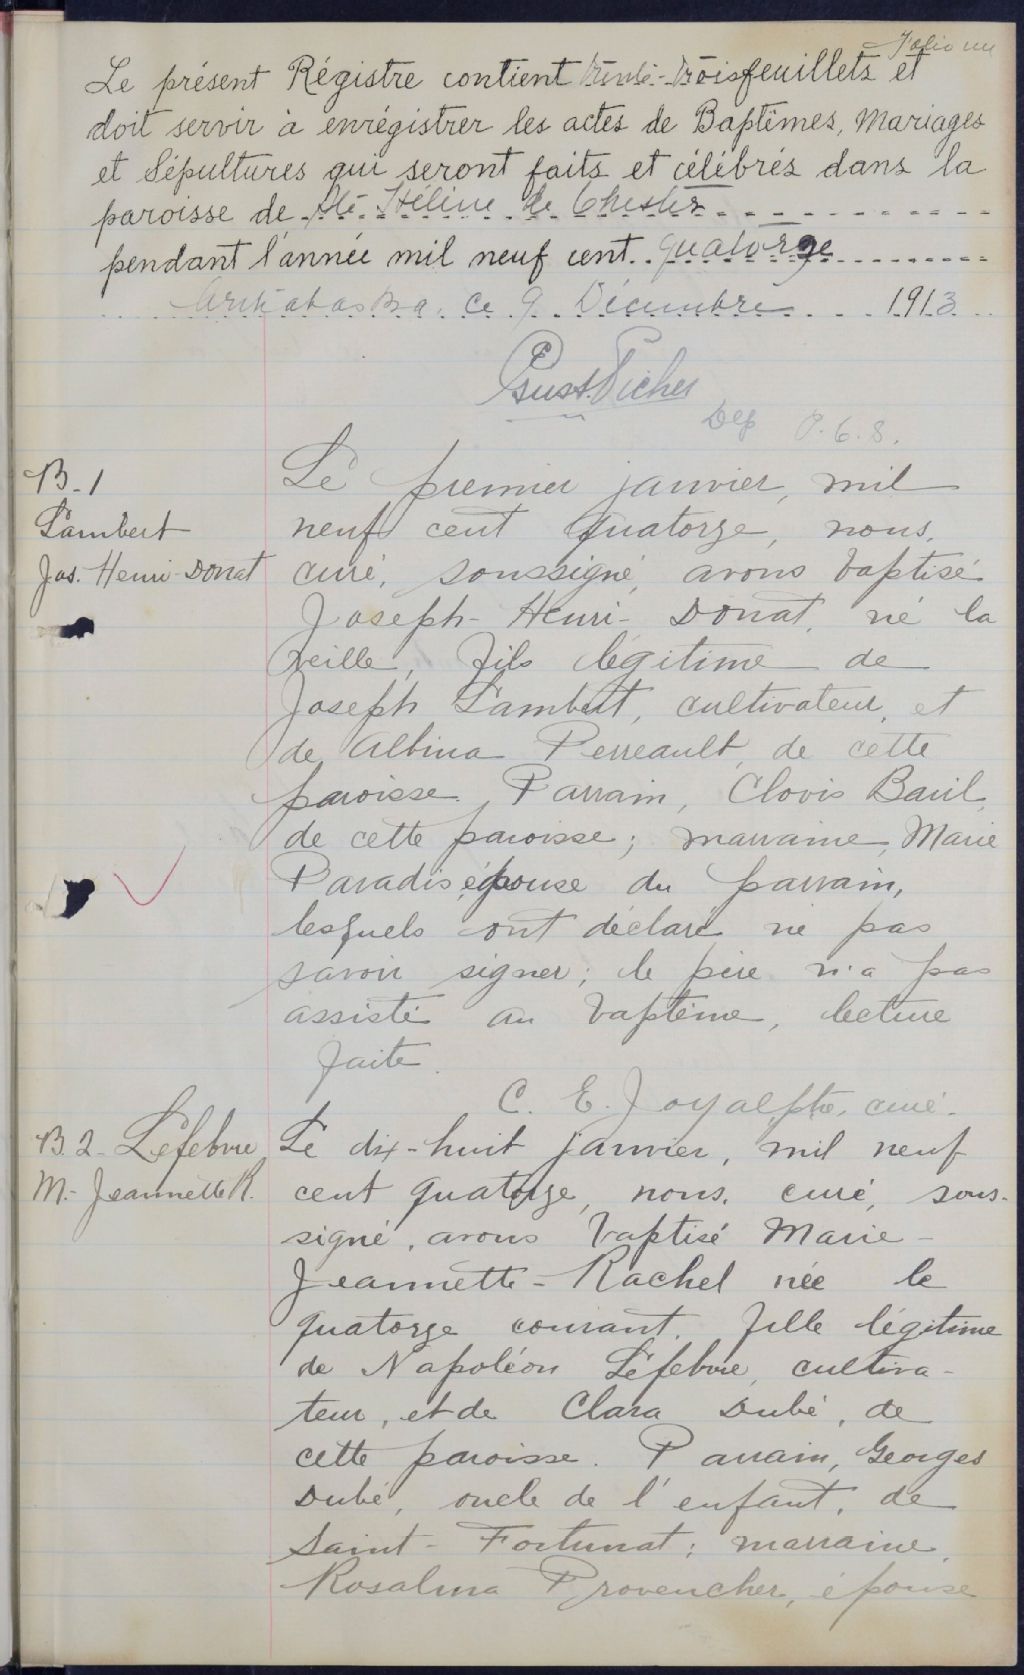 Folio un
Le présent Régistre contient trente-trois feuillets et
doit servir à enrégistrer les actes de Baptêmes, Mariages
et Sépultures qui seront faits et célébrés dans la
paroisse de Ste Hélène de Chester
pendant l'année mil neuf cent quatorze
Arthabaska, ce 9 Décembre 1913
Picher
Dep P.C.S.
B-1
Lambert
Jos. Henri-Donat
Le premier janvier, mil
neuf cent quatorze, nous,
curé, soussigné, avons baptisé
Joseph-Henri-Donat, né la
veille, fils légitime de
Joseph Lambert, cultivateur, et
de Albina Perreault, de cette
paroisse. Parrain, Clovis Baril,
de cette paroisse; marraine, Marie
Paradis, épouse du parrain,
lesquels ont déclaré ne pas
savoir signer; le père n'a pas
assisté au baptême, lecture
faite.
C. E. Joyal, ptre, curé.
B 2- Lefebvre
M.-Jeannette R.
Le dix-huit janvier, mil neuf
cent quatorze, nous, curé, sous-
signé, avons baptisé Marie-
Jeannette-Rachel née le
quatorze courant, fille légitime
de Napoléon Lefebvre, cultiva-
teur, et de Clara Dubé, de
cette paroisse. Parrain, Georges
Dubé, oncle de l'enfant, de
Saint-Fortunat; marraine,
Rosalma Provencher, épouse